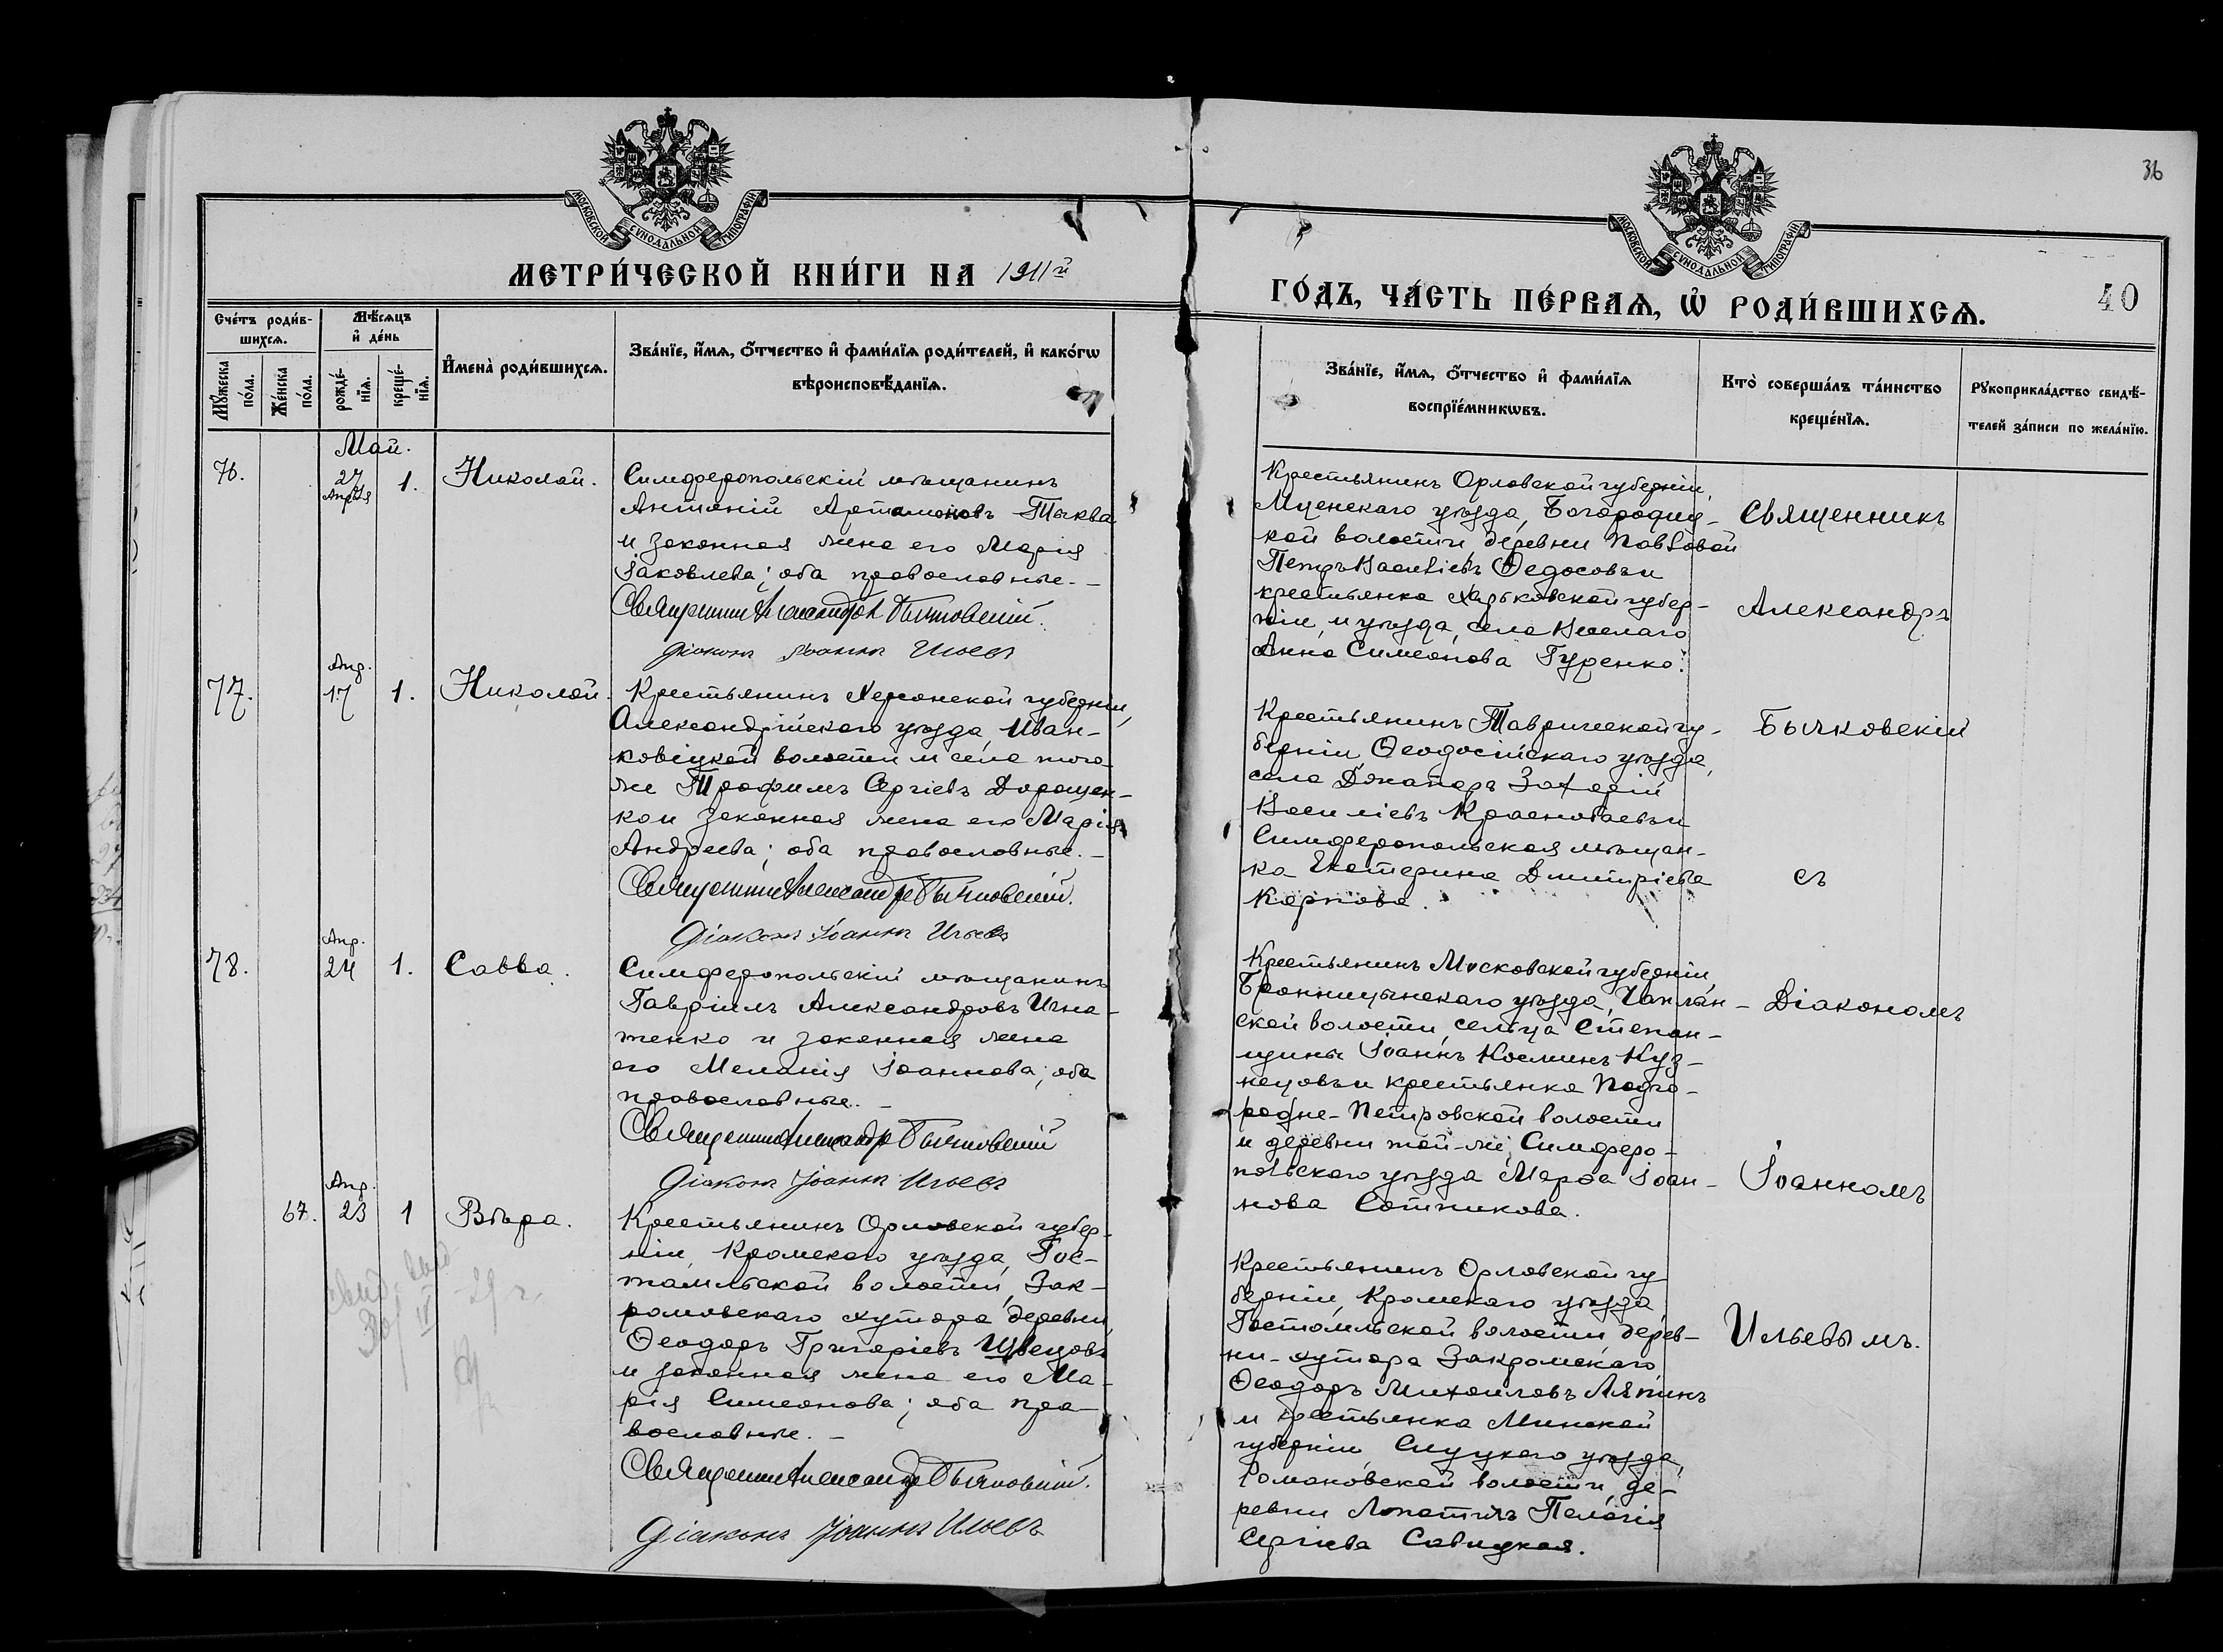 36
МОСКОВСКОЙ СѴНОДАЛЬНОЙ ТИПОГРАФІИ
МОСКОВСКОЙ СѴНОДАЛЬНОЙ ТИПОГРАФІИ
МЕТРИ́ЧЕСКОЙ КНИ́ГИ НА 1911й
ГО́ДЪ, ЧА́СТЬ ПЕ́РВАѦ, Ѡ҆ РОДИ́ВШИХСѦ.
40
Сче́тъ роди́в-
шихсѧ.
Мѣ́сѧцъ
и҆ де́нь
Мꙋ́жеска
по́ла.
Же́нска
по́ла.
рожде́-
нїѧ.
креще́-
нїѧ.
И҆мена̀ роди́вшихсѧ.
Зва́нїе, и҆́мѧ, ѻ҆́тчество и҆ фами́лїѧ роди́телей, и҆ како́гѡ
вѣроисповѣ́данїѧ.
Зва́нїе, и҆́мѧ, ѻ҆́тчество и҆ фами́лїѧ
воспрїе́мникѡвъ.
Кто̀ соверша́лъ та́инство
креще́нїѧ.
Рꙋкоприкла́дство свидѣ́-
телей за́писи по жела́нїю.
Май.
76.
27
Апрѣля
1.
Николай.
Симферопольскій мѣщанинъ
Антоній Артамоновъ Тыква
и законная жена его Марія
Іаковлева; оба православные. –
Священникъ Александръ Бычковскій.
Діаконъ Іоаннъ Ильевъ
Крестьянинъ Орловской губерніи,
Мценскаго уѣзда, Богородиц-
кой волости, деревни Павловой
Петръ Василіевъ Ѳедосовъ и
крестьянка Харьковской губер-
ніи, и уѣзда, села Веселаго
Анна Симеонова Гуренко.
Священникъ
Александръ
77.
Апр.
17
1.
Николай.
Крестьянинъ Херсонской губерніи,
Александрійскаго уѣзда, Иван-
ковіцкой волости и села того-
же Трофимъ Сергіевъ Дорошен-
ко и законная жена его Марія
Андреева; оба православные. –
Священникъ Александръ Бычковскій.
Діаконъ Іоаннъ Ильевъ
Крестьянинъ Таврической гу-
берніи, Ѳеодосійскаго уѣзда,
села Джапаръ Захарій
Василіевъ Краснобаевъ и
Симферопольская мѣщан-
ка Екатерина Димитріева
Карпова.
Бычковскій
съ
78.
Апр.
24
1.
Савва.
Симферопольскій мѣщанинъ
Гавріилъ Александровъ Игна-
тенко и законная жена
его Меланія Іоаннова; оба
православные. –
Священникъ Александръ Бычковскій
Діаконъ Іоаннъ Ильевъ
Крестьянинъ Московской губерніи,
Бронницынскаго уѣзда, Чаплын-
ской волости, сельца Степан-
щины Іоаннъ Косминъ Куз-
нецовъ и крестьянка Подго-
родне-Петровской волости
и деревни той-же, Симферо-
польскаго уѣзда Марѳа Іоан-
нова Сотникова.
Діакономъ
Іоанномъ
67.
Апр.
23
1
Вѣра.
Крестьянинъ Орловской губер-
ніи, Кромскаго уѣзда, Гос-
томльской волости, Зак-
ромовскаго хутора деревни
Ѳеодоръ Григоріевъ Швецовъ
и законная жена его Ма-
рія Симеонова; оба пра-
вославные. –
Священникъ Александръ Бычковскій.
Діаконъ Іоаннъ Ильевъ
Крестьянинъ Орловской гу-
берніи, Кромскаго уѣзда
Гостомльской волости, дерев-
ни-хутора Закромскаго,
Ѳеодоръ Михаиловъ Ляпинъ
и крестьянка Минской
губерніи, Слуцкаго уѣзда,
Романовской волости, де-
ревни Лопатичъ Пелагія
Сергіева Савицкая.
Ильевымъ.